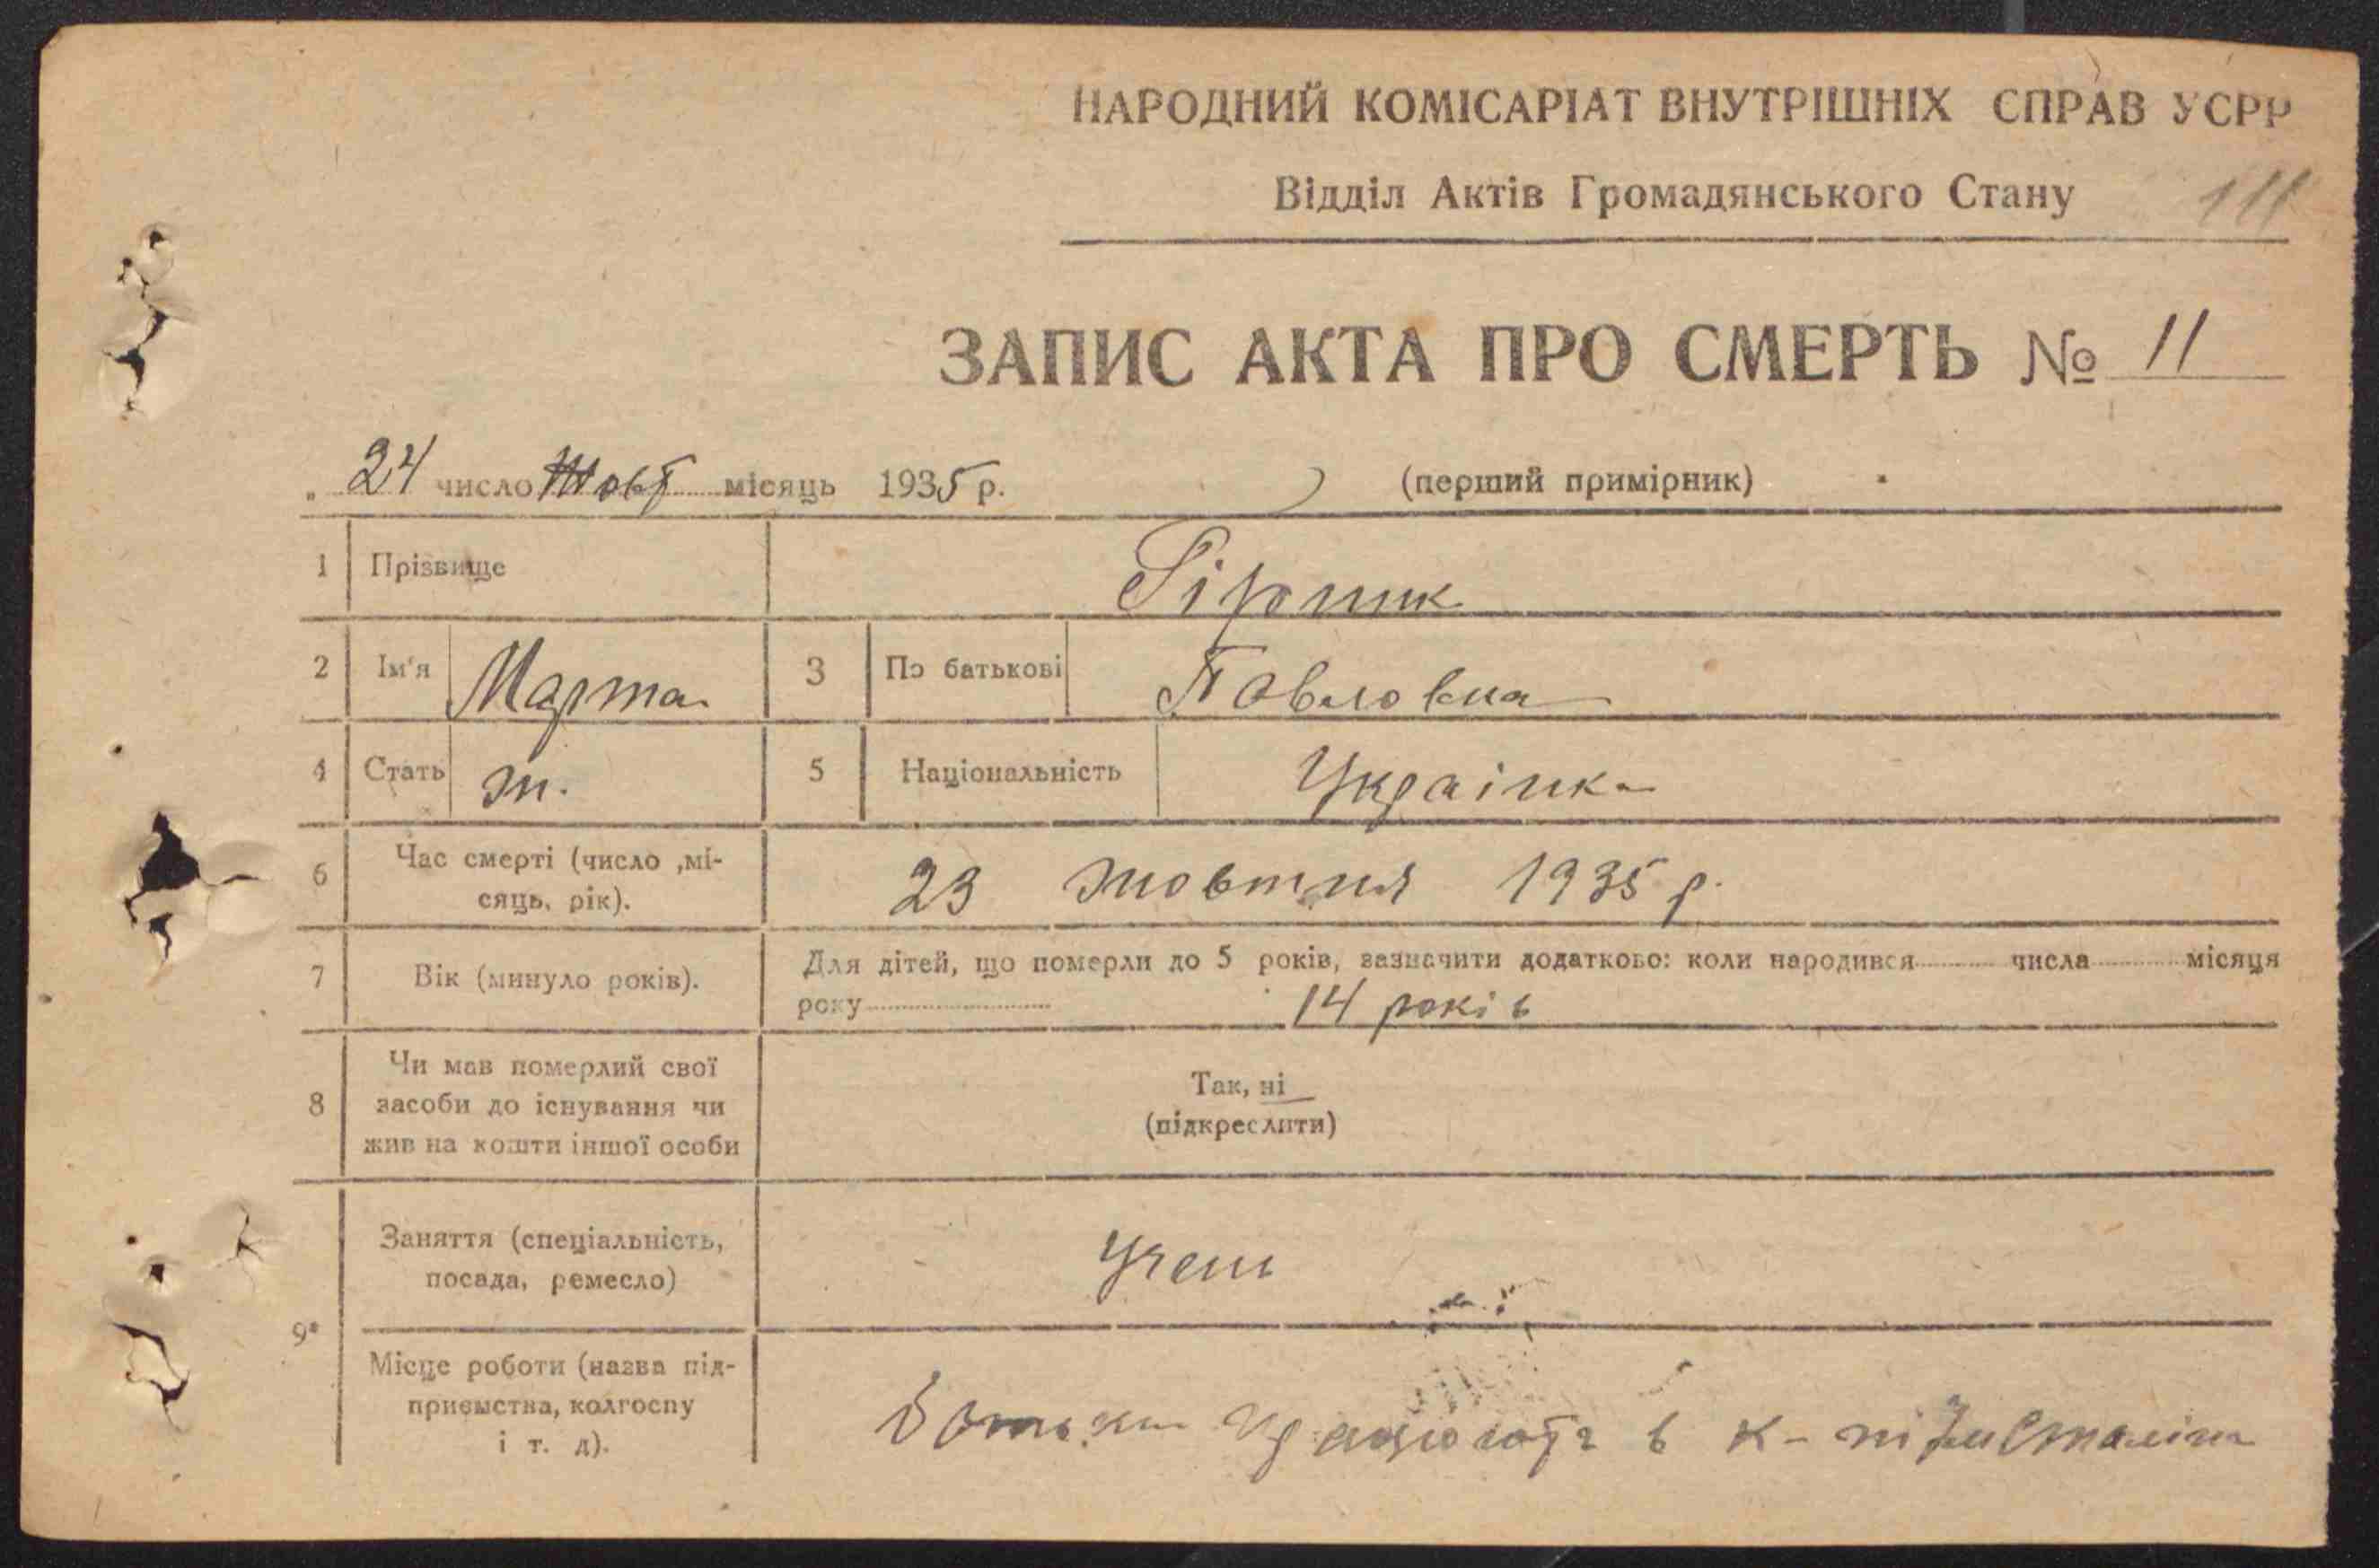 НАРОДНИЙ КОМІСАРІАТ ВНУТРІШНІХ СПРАВ УСРР
Відділ Актів Громадянського Стану
111
ЗАПИС АКТА ПРО СМЕРТЬ № 11
„ 24 число Жовт місяць 1935 р.
(перший примірник)
1 Прізвище Гірник
2 Ім'я Марта 3 По батькові Павловна
4 Стать ж. 5 Національність Українка
6 Час смерті (число ,мі-
сяць, рік).
23 жовтня 1935 р.
7 Вік (минуло років).
Для дітей, що померли до 5 років, зазначити додатково: коли народився числа місяця
року 14 років
8 Чи мав померлий свої
засоби до існування чи
жив на кошти іншої особи
Так, ні
(підкреслити)
9*
Заняття (спеціальність,
посада, ремесло)
Учень
Місце роботи (назва під-
приємства, колгоспу
і т. д).
в к-пі